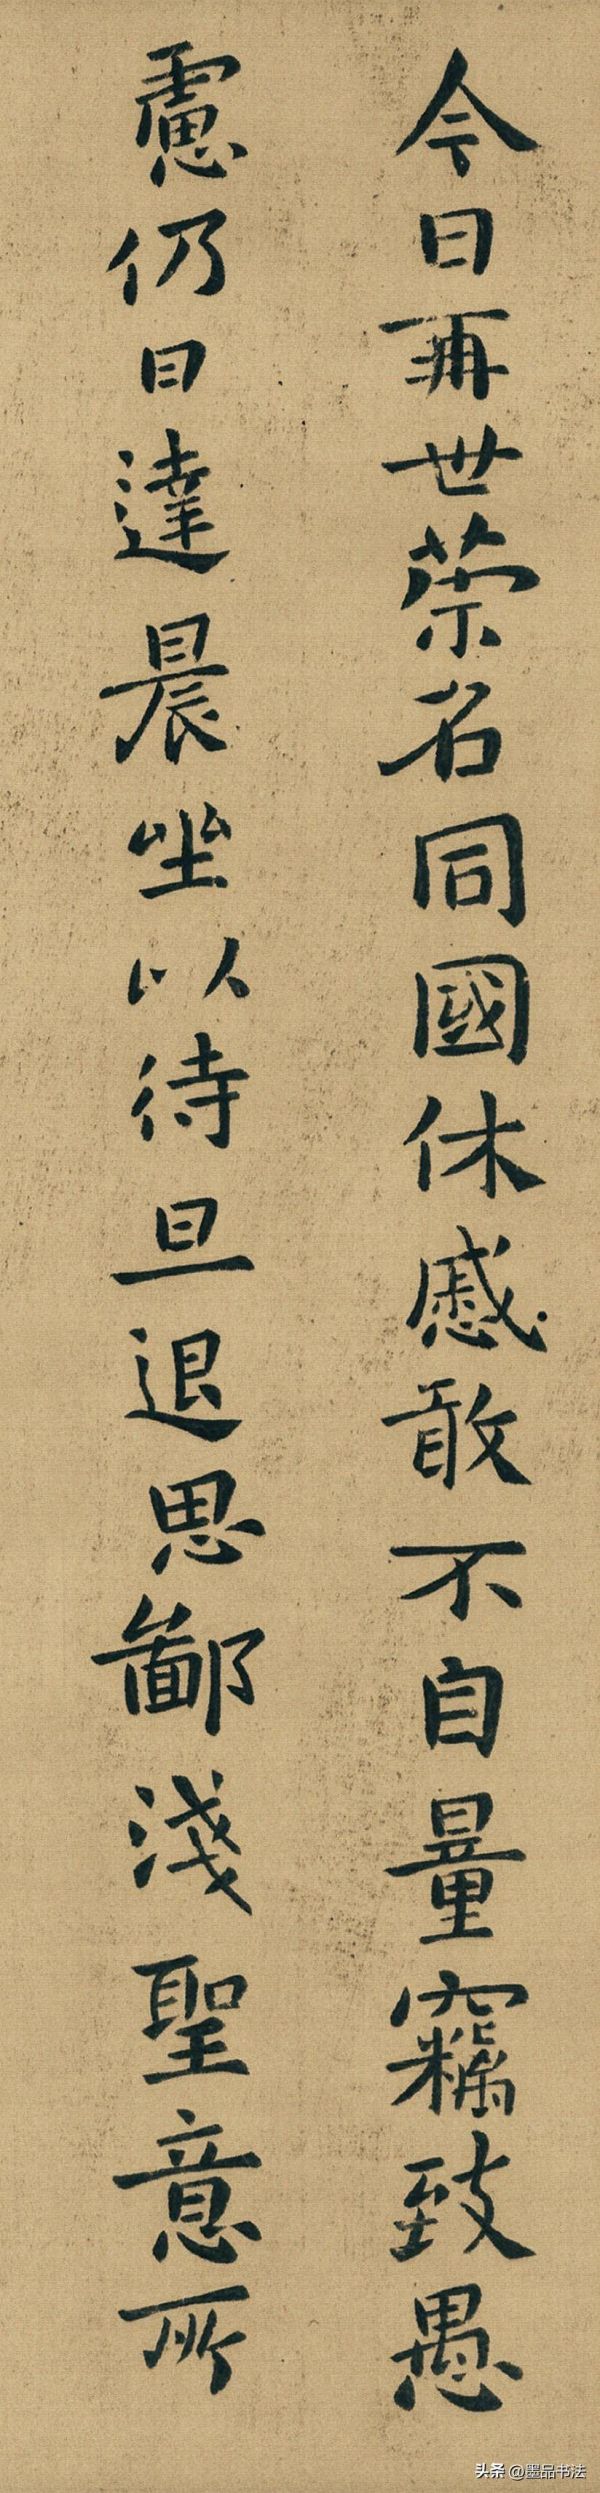 今日再世荣名同國休慼敢不自量竊致愚
慮仍日達晨坐以待旦退思鄙淺聖意所
头条 @墨品书法